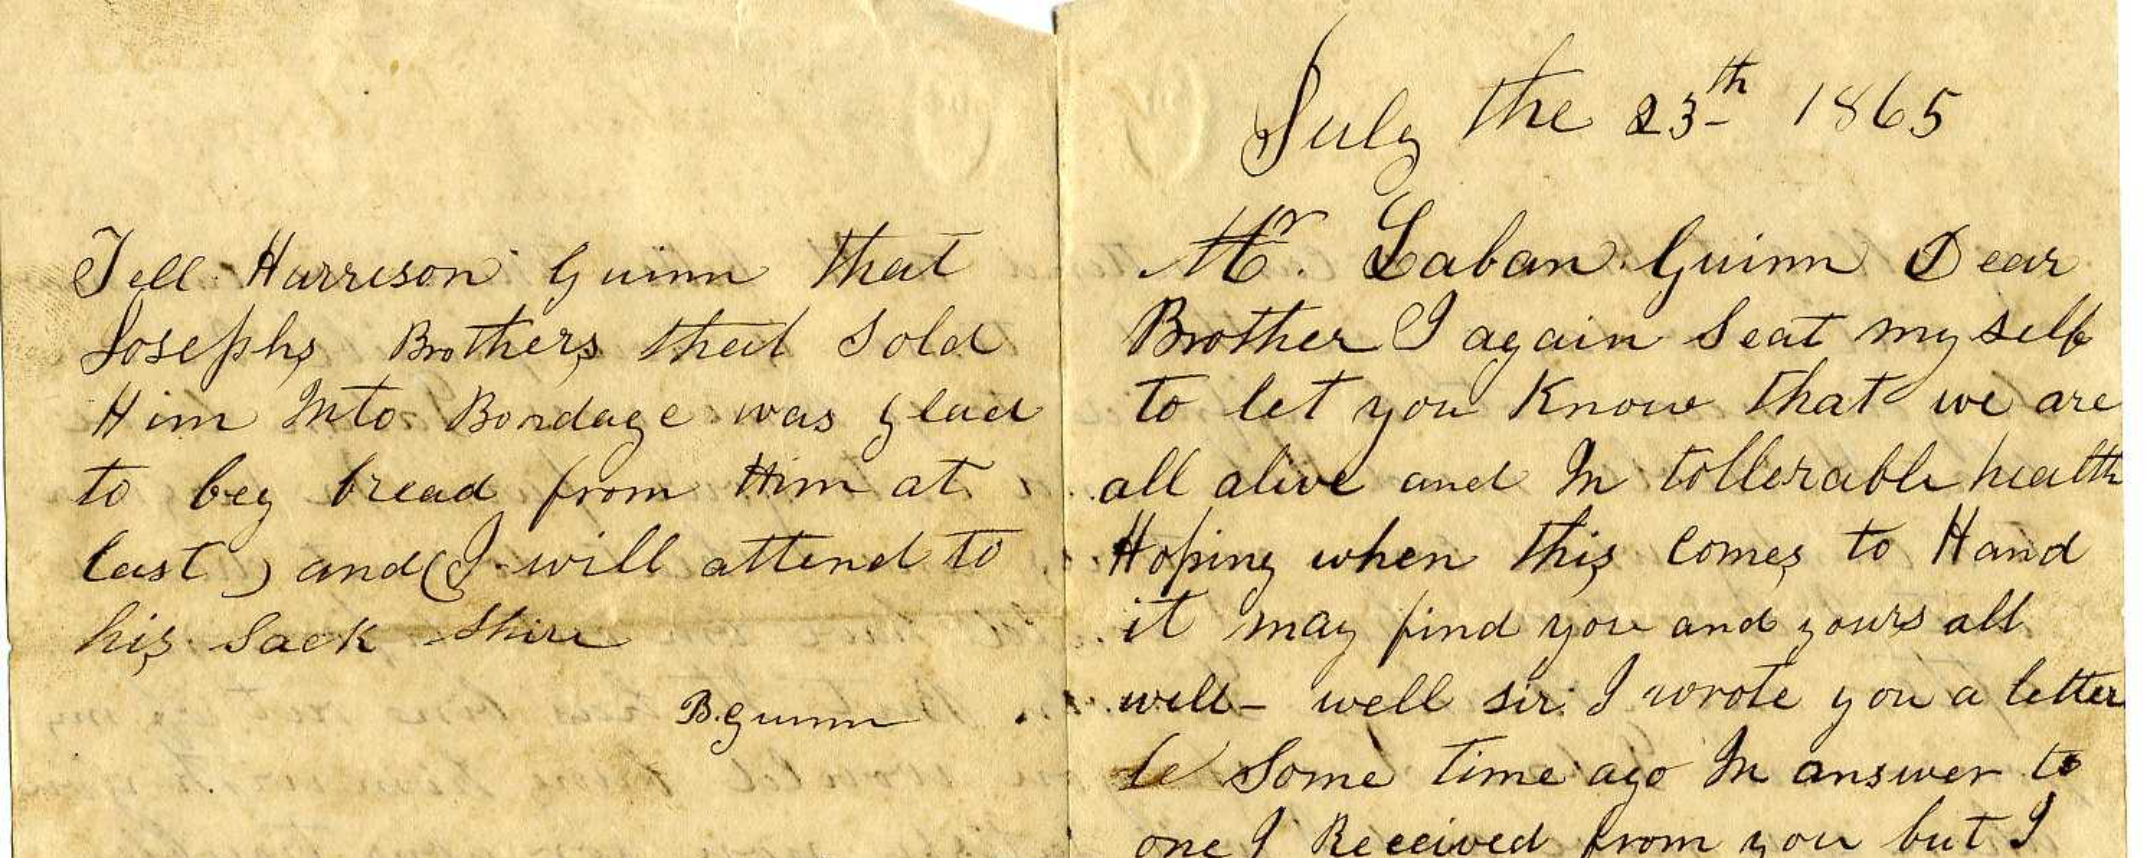 Tell Harrison Guinn that
Josephs Brothers that Sold
Him Into Bondage was glad
to beg bread from Him at
last) and (I will attend to
his Sack Shire
B. Guinn
July the 23th 1865
Mr. Laban Guinn Dear
Brother I again Seat my self
to let you Know that we are
all alive and In tollerable health
Hoping when this Comes to Hand
it may find you and yours all
well- well sir I wrote you a letter
Some time ago In answer to
one I Received from you but I